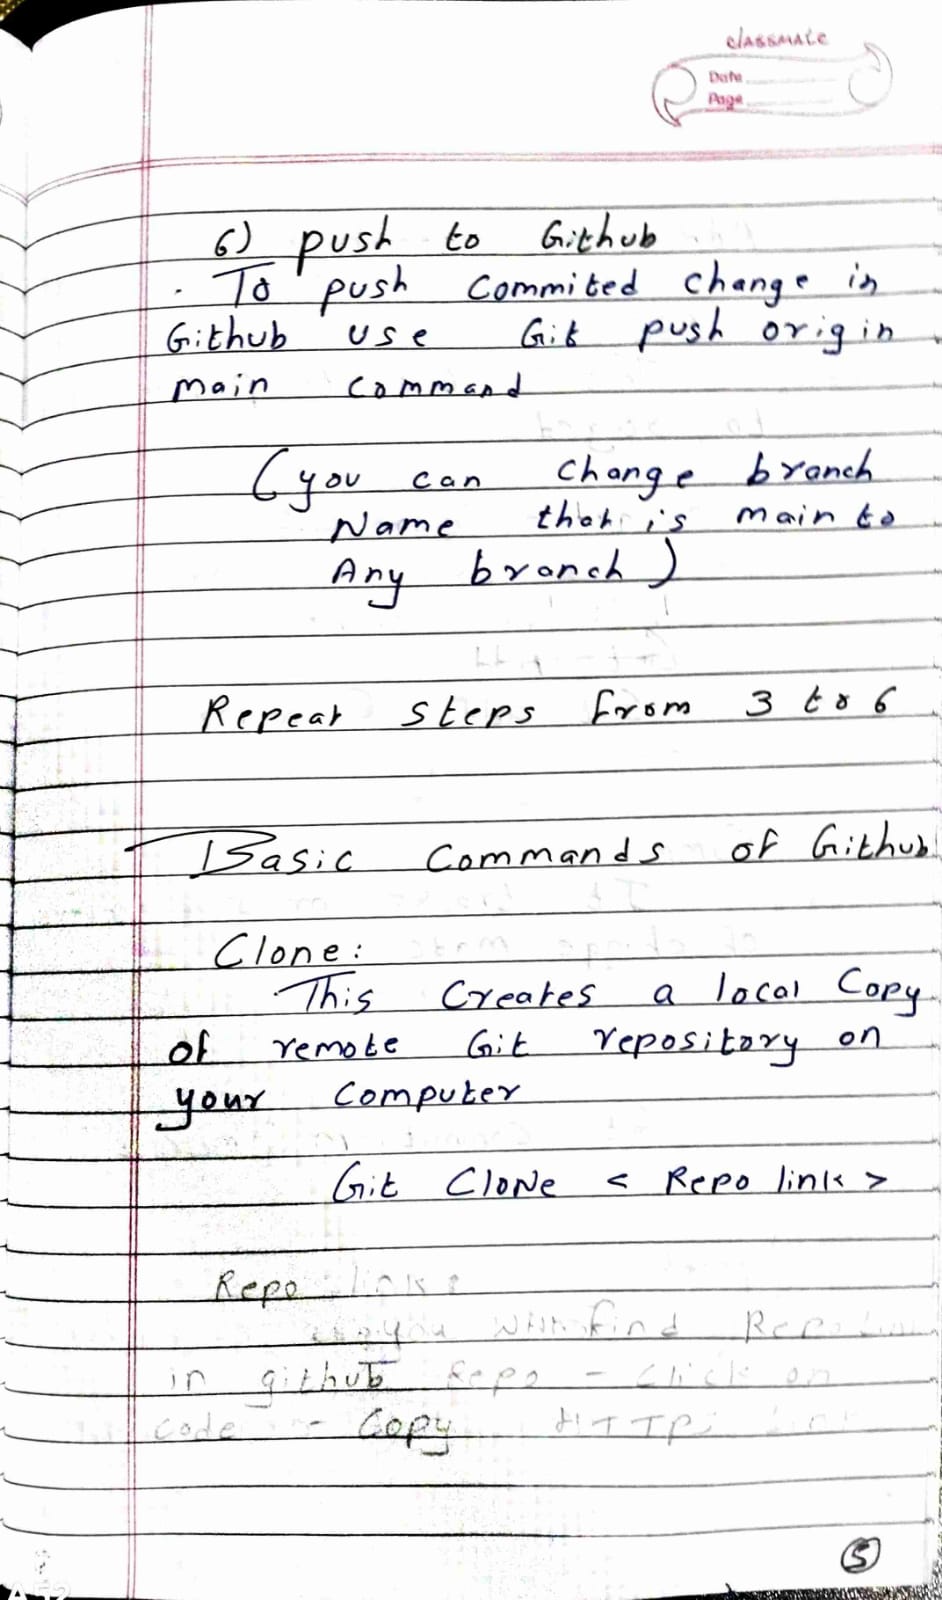 classmate
Date
Page
6) push to Github
. To push Commited change in
Github use Git push origin
main command
(you can change branch
Name that is main to
Any branch)
Repeat steps from 3 to 6
Basic Commands of Github
Clone:
This Creates a local Copy
of remote Git repository on
your Computer
Git CloNe < Repo link >
Repo link:
you will find Repo
in github Repo - click on
code - Copy HTTP
5